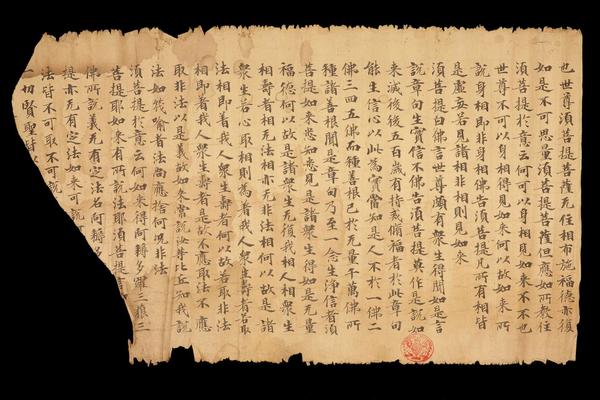 也世尊須菩提菩薩无住相布施福德亦復
如是不可思量須菩提菩薩但應如所教住
須菩提於意云何可以身相見如來不不也
世尊不可以身相得見如來何以故如來所
說身相即非身相佛告須菩提凡所有相皆
是虛妄若見諸相非相則見如來
須菩提白佛言世尊頗有衆生得聞如是言
說章句生實信不佛告須菩提莫作是說如
來滅後後五百歲有持戒脩福者於此章句
能生信心以此為實當知是人不於一佛二
佛三四五佛而種善根已於无量千萬佛所
種諸善根聞是章句乃至一念生淨信者須
菩提如來悉知悉見是諸衆生得如是无量
福德何以故是諸衆生无復我相人相衆生
相壽者相无法相亦无非法相何以故是諸
衆生若心取相則為着我人衆生壽者若取
法相即着我人衆生壽者何以故若取非法
相即着我人衆生壽者是故不應取法不應
取非法以是義故如來常說汝等比丘知我說
法如筏喻者法尚應捨何況非法
須菩提於意云何如來得阿耨多羅三藐三
菩提耶如來有所說法耶須菩提言
佛所說義无有定法名阿耨多
提亦无有定法如來可說
法皆不可取不可說
一切賢聖皆以